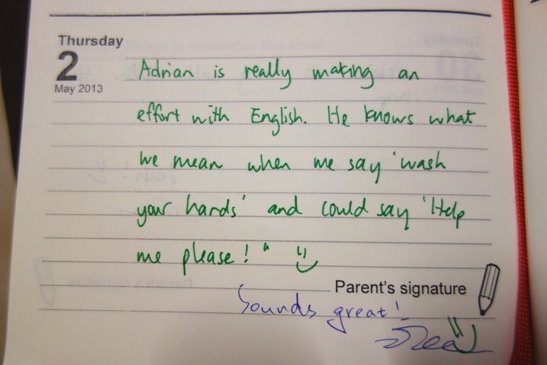 Thursday
2
May 2013
Adrian is really making an
effort with English. He knows what
we mean when we say 'wash
your hands' and could say 'Help
me please!"
Parent's signature
Sounds great!